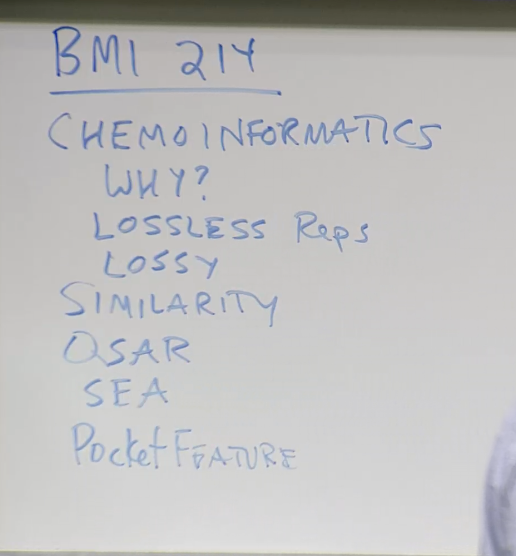 BMI 214
CHEMOINFORMATICS
WHY?
LOSSLESS Reps
LOSSY
SIMILARITY
QSAR
SEA
PocketFEATURE